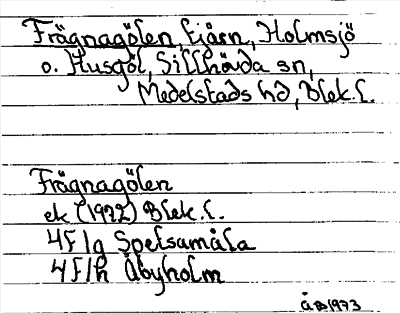 Frägnagölen, tjärn, Holmsjö
o. Husgöl, Sillhövda sn,
Medelstads hd, Blek.l.
Frägnagölen
ek (1972) Blek.l.
4F/g Spetsamåla
4F/h Åbyholm
ÅB 1973